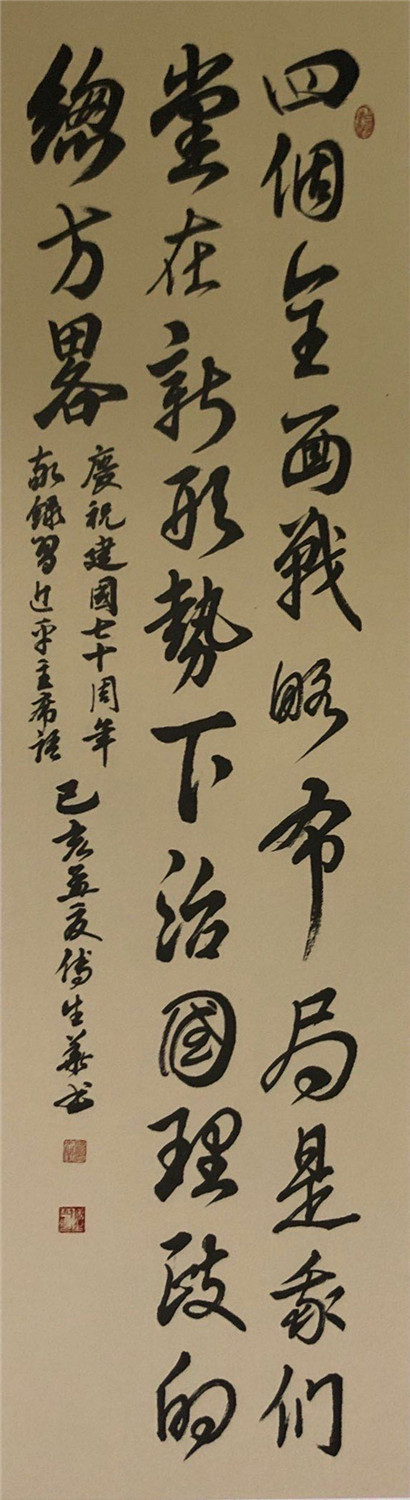 四個全面戰略布局是我們
黨在新形勢下治國理政的
總方畧
慶祝建國七十周年
敬錄習近平主席語
己亥孟夏傅生華书